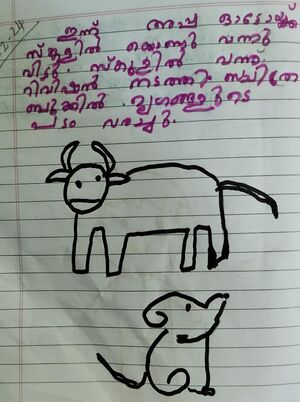 2.24
ഇന്ന് അപ്പ ഓട്ടോയ്ക്ക്
സ്കൂളിൽ കൊണ്ടു വന്നു
വിട്ടു. സ്കൂളിൽ വന്ന്
റിവിഷൻ നടത്തി.
ബുക്കിൽ മൃഗങ്ങളുടെ
പടം വരച്ചു.